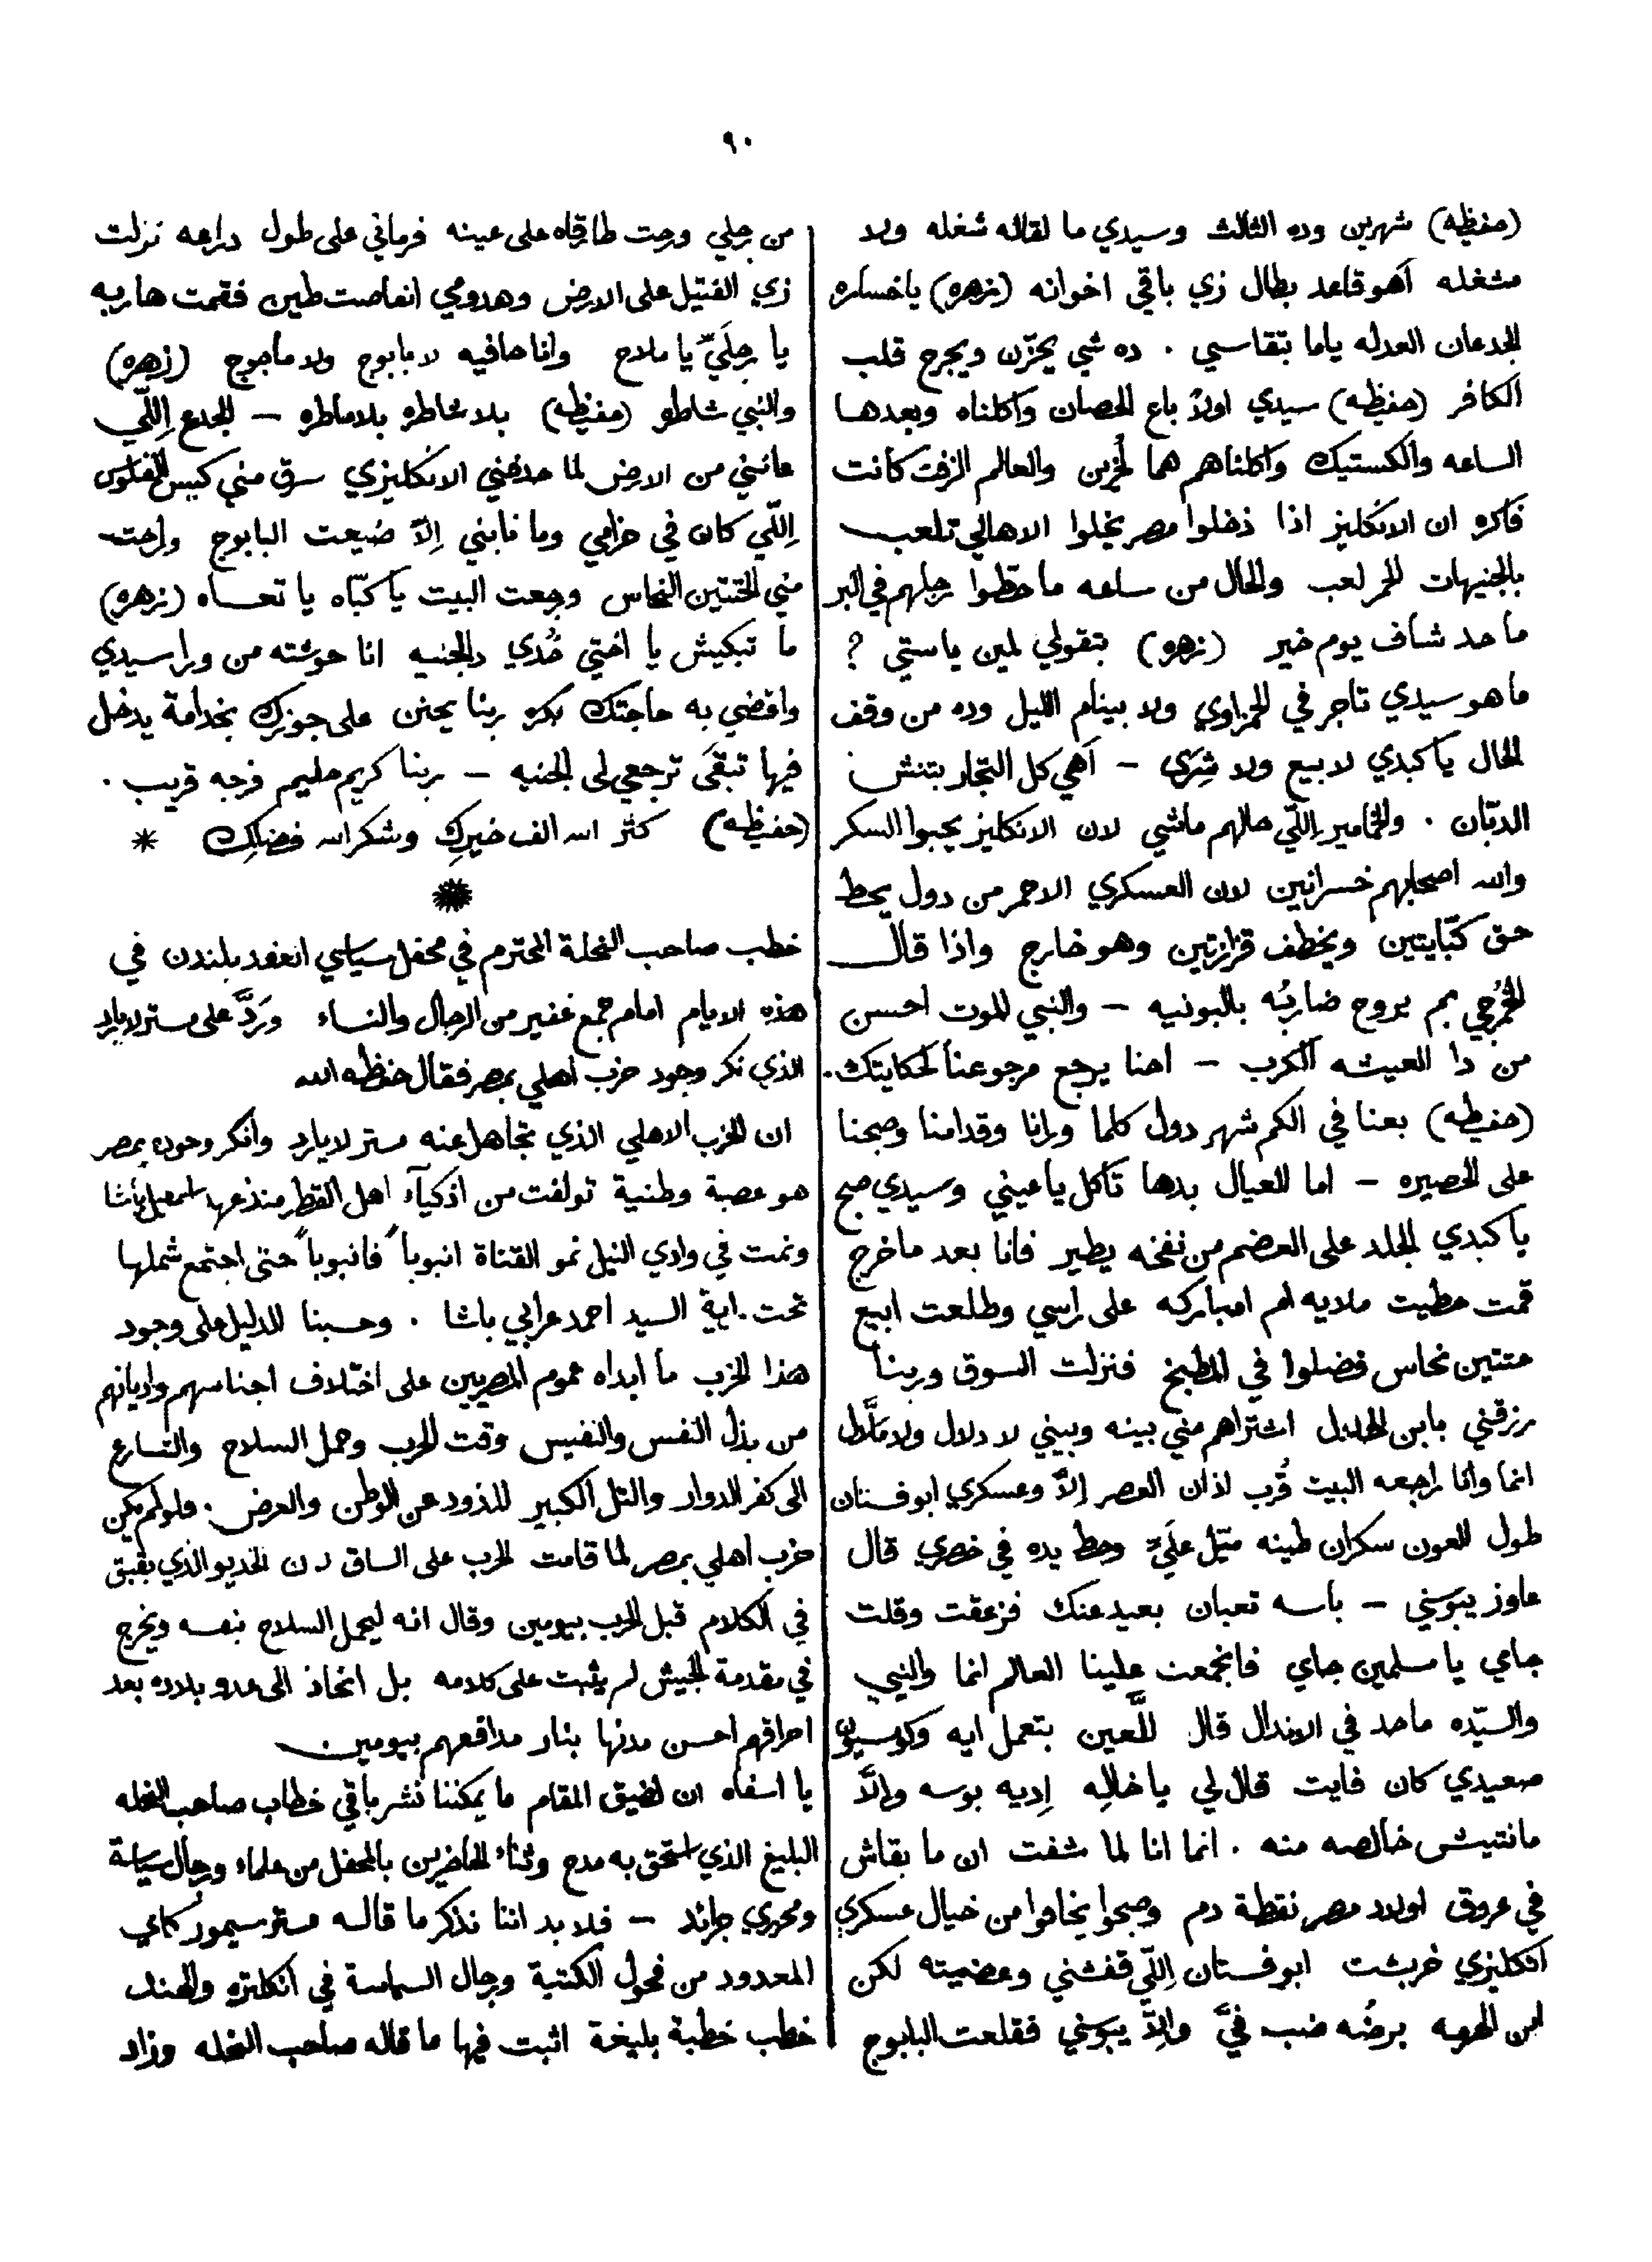 ٩٠
(حفيظه) شهرين وده الثالث وسيدي ما لقاله شغله ولا
مشغله أهو قاعد بطال زي باقي اخوانه (زهره) يا خساره
الجدعان العدله ياما بتقاسي . ده شي يحزّن ويجرح قلب
الكافر (حفيظه) سيدي اولاً باع الحصان واكلناه وبعدها
الساعه والكستيك واكلناهم هما لخرين والعالم الزفت كانت
فاكره ان الانكليز اذا دخلوا مصر يخلوا الاهالي تلعب
بالجنيهات الحمر لعب والحال من ساعه ما حطّوا رجلهم في البر
ما حد شاف يوم خير (زهره) بتقولي لمين يا ستي ?
ما هو سيدي تاجر في الحمزاوي ولا بينام الليل وده من وقف
الحال يا كبدي لا بيع ولا شِرَى – أهي كل التجار بتنش
الدبّان . والخمامير اللّي حالهم ماشي لان الانكليز يحبوا السكر
والله اصحابهم خسرانين لان العسكري الاحمر من دول يحط
حق كبّايتين ويخطف قزازتين وهو خارج واذا قال
الخُمرجي بم يروح ضاربُه بالبونيه – والنبي الموت احسن
من دا العيشه الكرب – احنا يرجع مرجوعنا لحكايتك .
(حفيظه) بعنا في الكم شهر دول كلما ورانا وقدامنا وصبحنا
على الحصيره – اما العيال بدها تاكل يا عيني وسيدي صبح
يا كبدي الجلد على العضم من نفخه يطير فانا بعد ما خرج
قمت حطيت ملايه ام امباركه على راسي وطلعت ابيع
حتتين نحاس فضلوا في المطبخ فنزلت السوق وربنا
رزقني بابن الحلال اشتراهم مني بينه وبيني لا دلال ولا
انما وانا راجعه البيت قُرب اذان العصر إلاّ وعسكري ابو فستان
طول العون سكران طينه ميّل عليّ وحط يده في خصري قال
عاوز يبوسني – باسه تعبان بعيد عنك فزعقت وقلت
جاي يا مسلمين جاي فانجمعت علينا العالم انما والنبي
والسيّده ما حد في الاندال قال للّعين بتعمل ايه
صعيدي كان فايت قال لي يا خاله إديه بوسه والاّ
مانتيش خالصه منه . انما انا لما شفت ان ما بقاش
في عروق اولاد مصر نقطة دم وصبحوا يخافوا من خيال عسكري
انكليزي خربشت ابو فستان اللّي قفشني وعضيته لكن
ابن برضُه ضب فيَّ والاّ يبوسني فقلعت البابوج
من رجلي ورحت طاقاه على عينه فرماني على طول دراعه نزلت
زي الفتيل على الارض وهدومي انعاصت طين فقمت هاربه
يا رجليّ يا ملاح وانا حافيه لا بابوج ولا ماجوج (زهره)
والنبي شاطره (حفيظه) بلا شاطره بلا ماطره – الجدع اللّي
عانني من الارض لما حدفني الانكليزي سرق مني كيس الفلوس
اللّي كان في حزامي وما نابني إلاّ ضيعت البابوج وراحت
مني الحتتين النحاس ورجعت البيت يا كبّاه يا تعساه (زهره)
ما تبكيش يا اختي خُدي دالجنيه انا حوشته من ورا سيدي
واقضي به حاجتك بكره ربنا يحنن على جوزك بخدامة يدخل
فيها تبقَى ترجعي لى الجنيه – ربنا كريم حليم فرجه قريب .
(حفيظه) كثر الله الف خيركِ وشكر الله فضلكِ *
*
خطب صاحب النحلة المحترم في محفل سياسي انعقد بلندن في
هذه الايام امام جمع غفير من الرجال والنساء ورَدَّ على مستر لايارد
الذي نكر وجود حزب اهلي بمصر فقال حفظه الله
ان الحزب الاهلي الذي تجاهل عنه مستر لايارد وانكر وجوده بمصر
هو عصبة وطنية تولفت من اذكيآء اهل القطر منذ عهد اسمعيل باشا
ونمت في وادي النيل نمو القناة انبوباً فانبوباً حتى اجتمع شملها
تحت راية السيد احمد عرابي باشا . وحسبنا الدليل على وجود
هذا الحزب ما ابداه عموم المصريين على اختلاف اجناسهم واديانهم
من بذل النفس والنفيس وقت الحرب وحمل السلاح والتسارع
الى كفر الدوار والتل الكبير للذود عن الوطن والعرض . فلو لم يكن
حزب اهلي بمصر لما قامت الحرب على الساق لان الخديو الذي بقبق
في الكلام قبل الحرب بيومين وقال انه ليحمل السلاح بنفسه ويخرج
في مقدمة الجيش لم يثبت على كلامه بل انحاذ الى عدو بلاده بعد
احراقهم احسن مدنها بنار مدافعهم بيومين
يا اسفاه ان لضيق المقام ما يمكننا نشر باقي خطاب صاحب النحله
البليغ الذي استحق به مدح وثناء الحاضرين بالمحفل من علماء ورجال سياسة
ومحرري جرائد – فلا بد اننا نذكر ما قاله مستر سيمور كاي
المعدود من فحول الكتبة ورجال السياسة في انكلتره والهند
خطب خطبة بليغة اثبت فيها ما قاله صاحب النحله وزاد